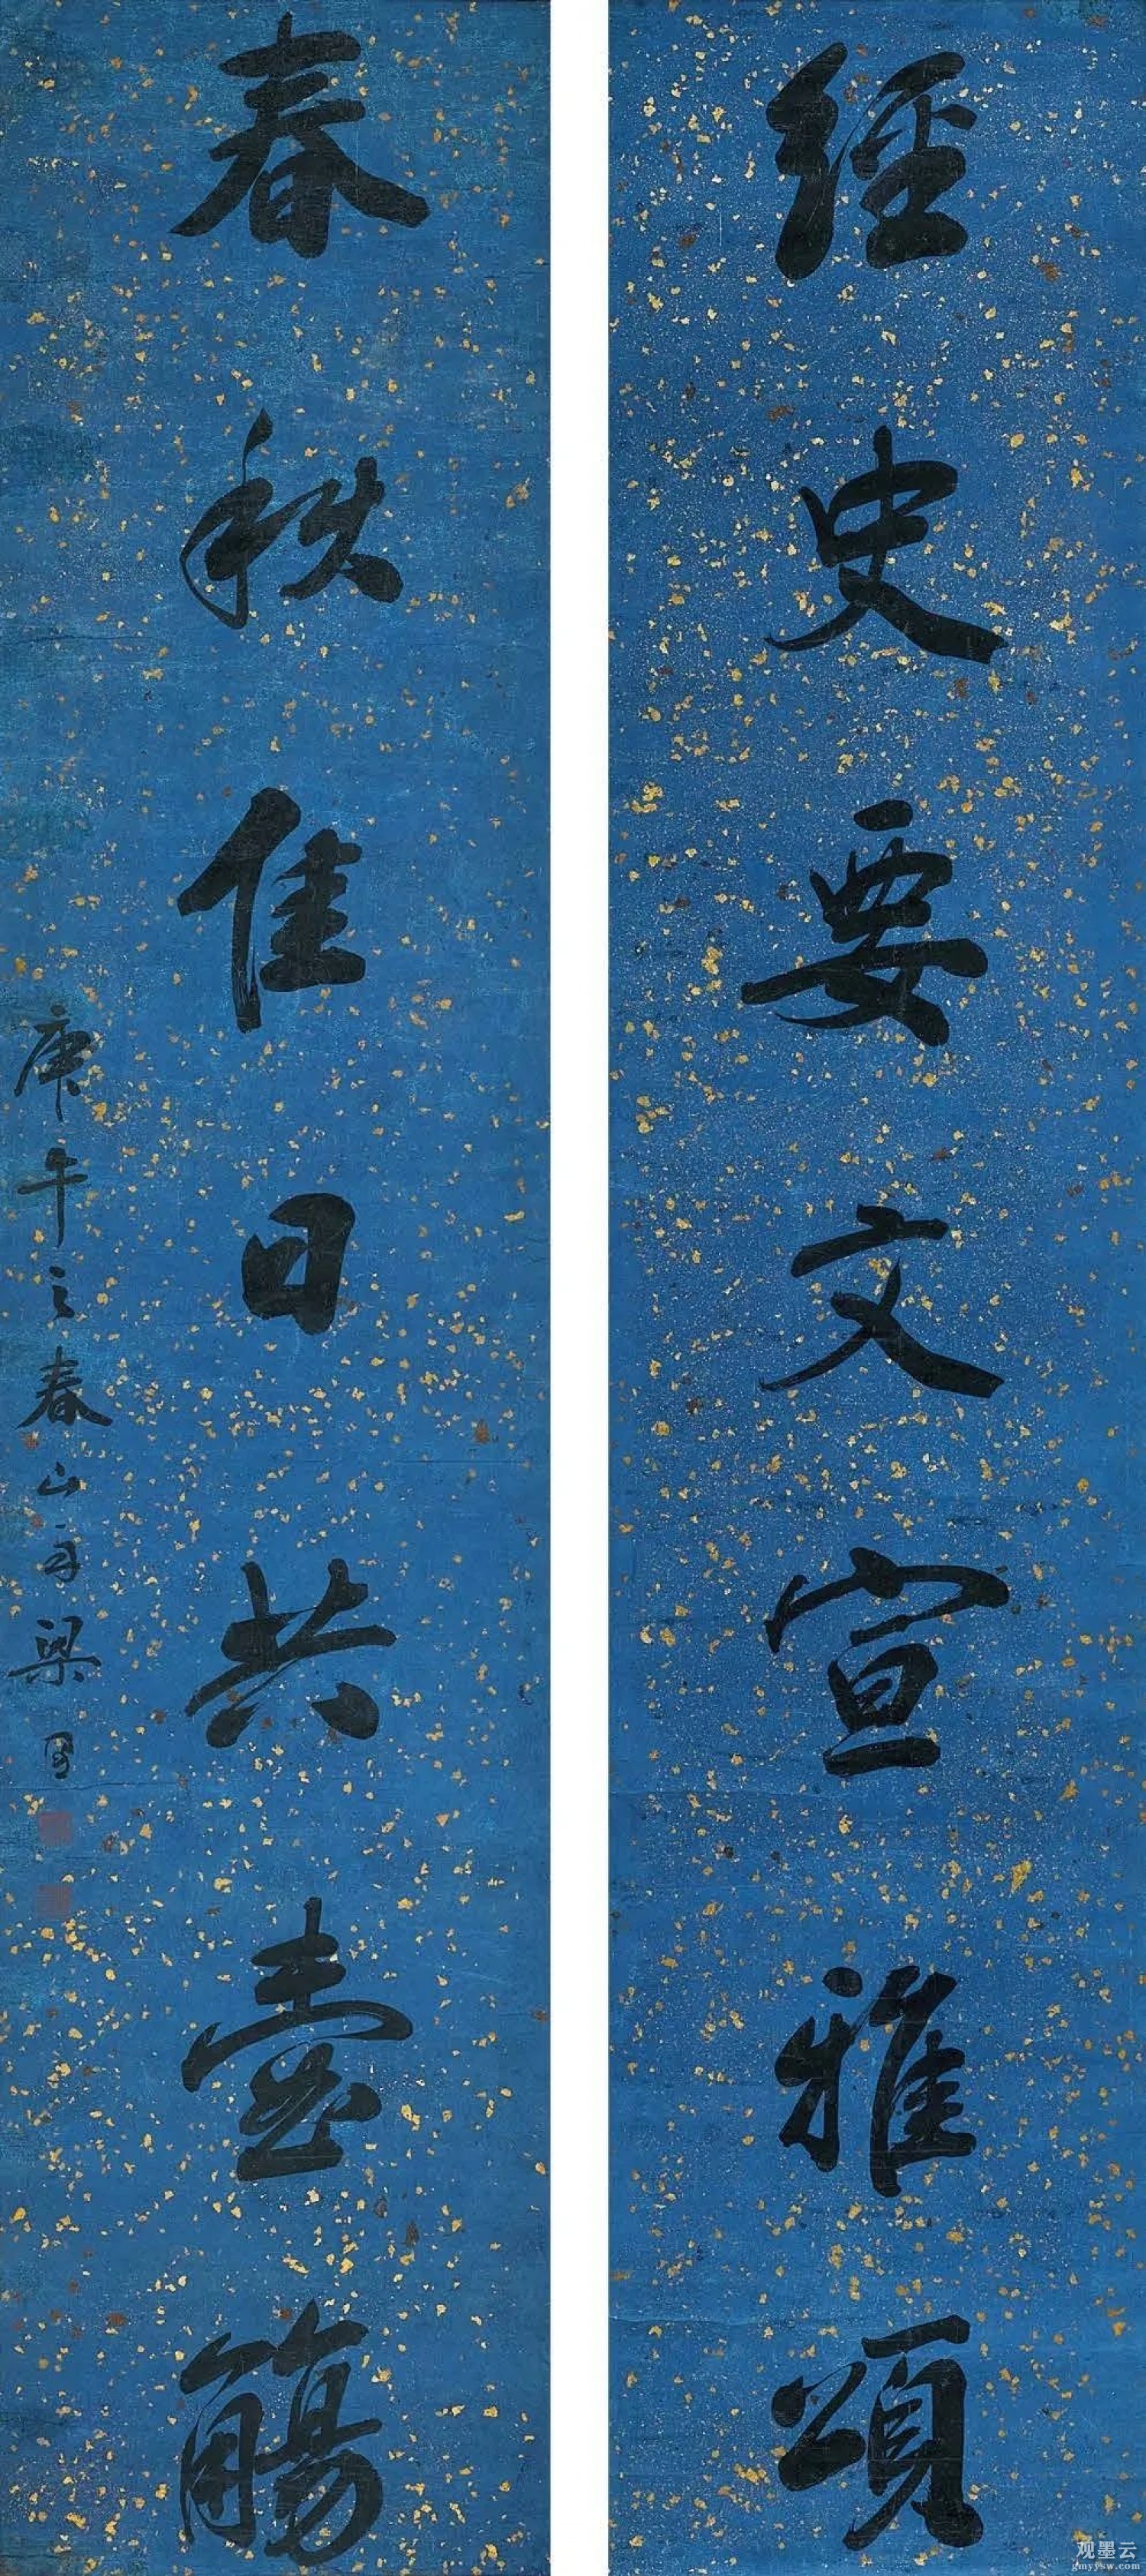 經史要文宣雅頌
春秋佳日共壺觴
庚午之春山舟梁同書
观墨云
gmyysw.com